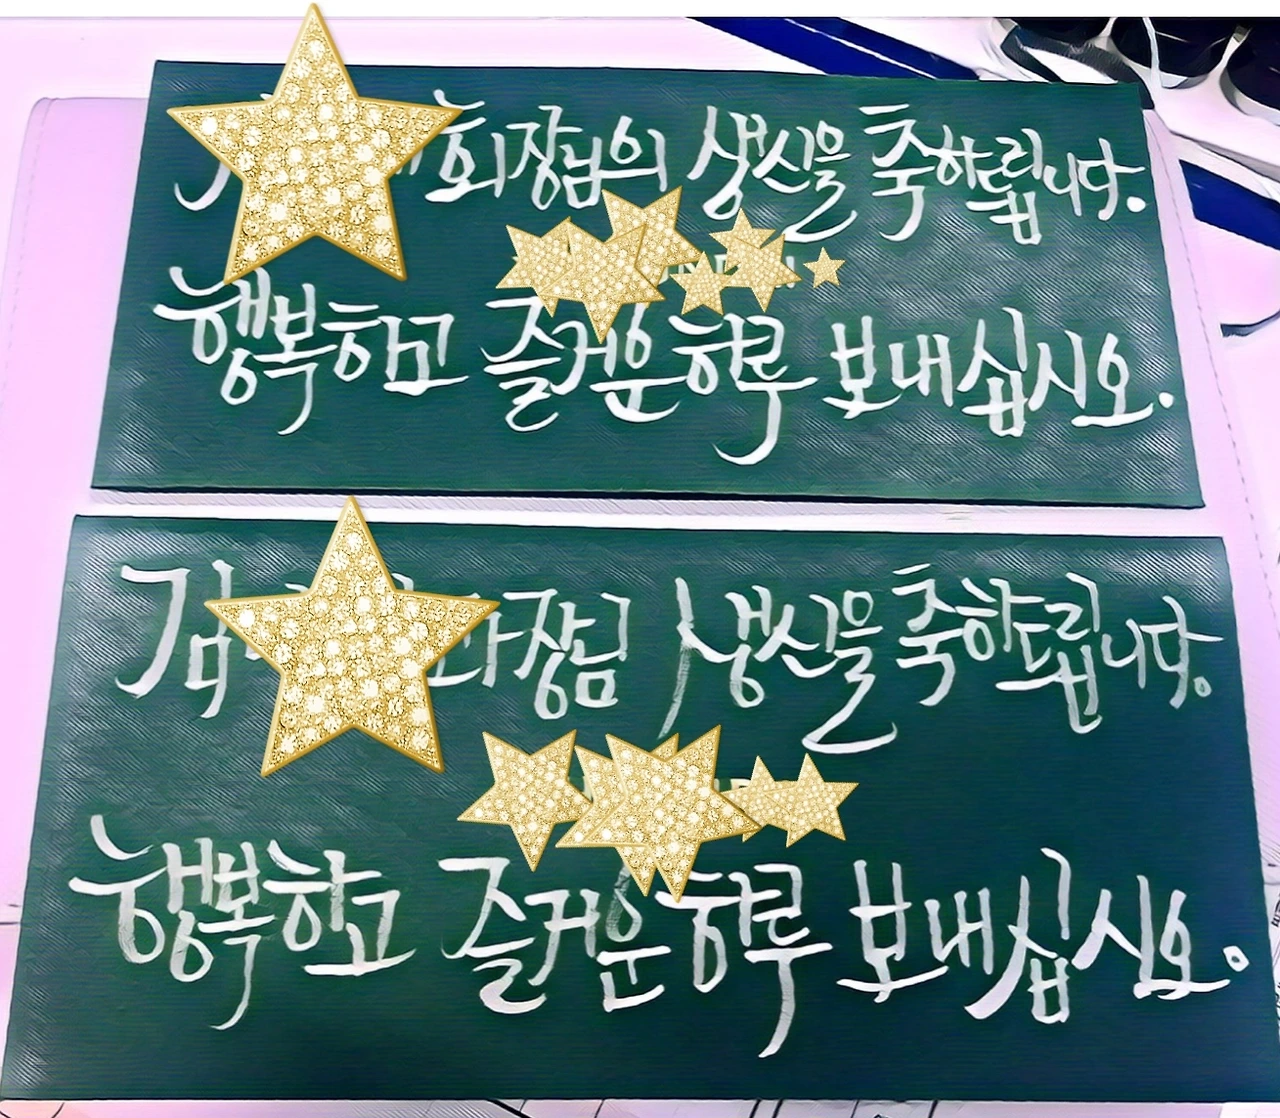 회장님의 생신을 축하드립니다.
행복하고 즐거운 하루 보내십시오.
김 과장님 생신을 축하드립니다.
행복하고 즐거운 하루 보내십시오.